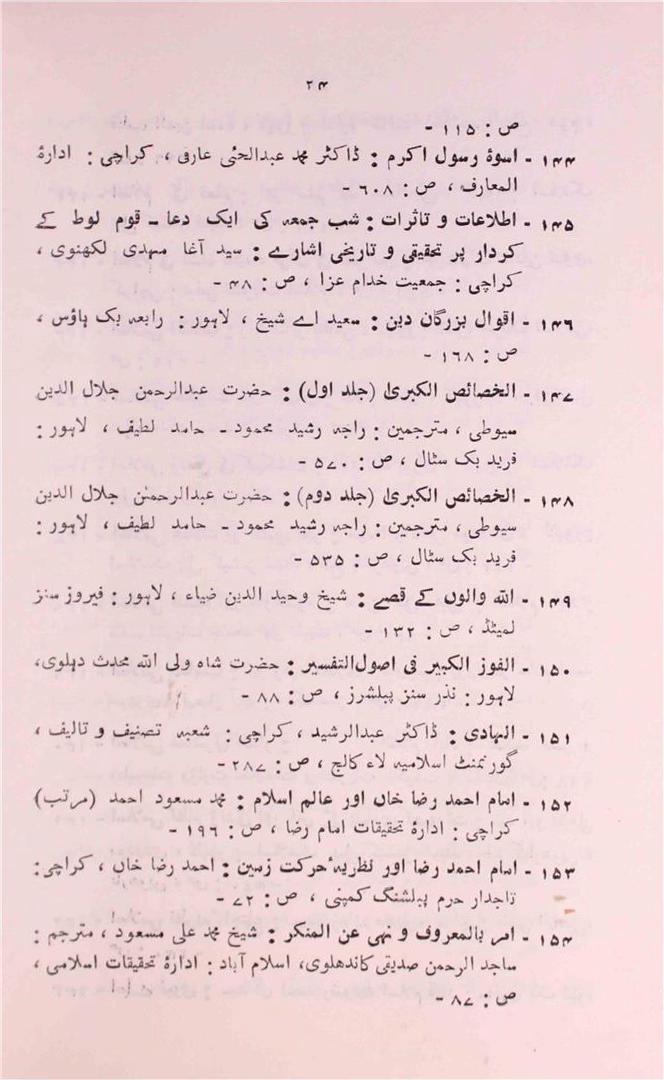 ۲۴
ص : ۱۱۵ -
۱۴۴ - اسوۂ رسول اکرم : ڈاکٹر محمد عبدالحئی عارفی ، کراچی : ادارۂ
المعارف ، ص : ۶۰۸ -
۱۴۵ - اطلاعات و تاثرات : شب جمعہ کی ایک دعا - قوم لوط کے
کردار پر تحقیقی و تاریخی اشارے : سید آغا مہدی لکھنوی ،
کراچی : جمعیت خدام عزا ، ص : ۴۸ -
۱۴۶ - اقوال بزرگان دین : سعید اے شیخ ، لاہور : رابعہ بک ہاؤس ،
ص : ۱۶۸ -
۱۴۷ - الخصائص الکبریٰ (جلد اول) : حضرت عبدالرحمن جلال الدین
سیوطی ، مترجمین : راجہ رشید محمود - حامد لطیف ، لاہور :
فرید بک سٹال ، ص : ۵۷۰ -
۱۴۸ - الخصائص الکبریٰ (جلد دوم) : حضرت عبدالرحمن جلال الدین
سیوطی ، مترجمین : راجہ رشید محمود - حامد لطیف ، لاہور :
فرید بک سٹال ، ص : ۵۳۵ -
۱۴۹ - اللہ والوں کے قصے : شیخ وحید الدین ضیاء ، لاہور : فیروز سنز
لمیٹڈ ، ص : ۱۳۲ -
۱۵۰ - الفوز الکبیر فی اصول التفسیر : حضرت شاہ ولی اللہ محدث دہلوی،
لاہور : نذر سنز پبلشرز ، ص : ۸۸ -
۱۵۱ - الہادی : ڈاکٹر عبدالرشید ، کراچی : شعبہ تصنیف و تالیف ،
گورنمنٹ اسلامیہ لاء کالج ، ص : ۲۸۷ -
۱۵۲ - امام احمد رضا خاں اور عالم اسلام : محمد مسعود احمد (مرتب)
کراچی : ادارۂ تحقیقات امام رضا ، ص : ۱۹۶ -
۱۵۳ - امام احمد رضا اور نظریۂ حرکت زمین : احمد رضا خاں ، کراچی :
تاجدار حرم پبلشنگ کمپنی ، ص : ۷۲ -
۱۵۴ - امر بالمعروف و نہی عن المنکر : شیخ محمد علی مسعود ، مترجم :
ساجد الرحمن صدیقی کاندھلوی، اسلام آباد : ادارۂ تحقیقات اسلامی ،
ص : ۸۷ -